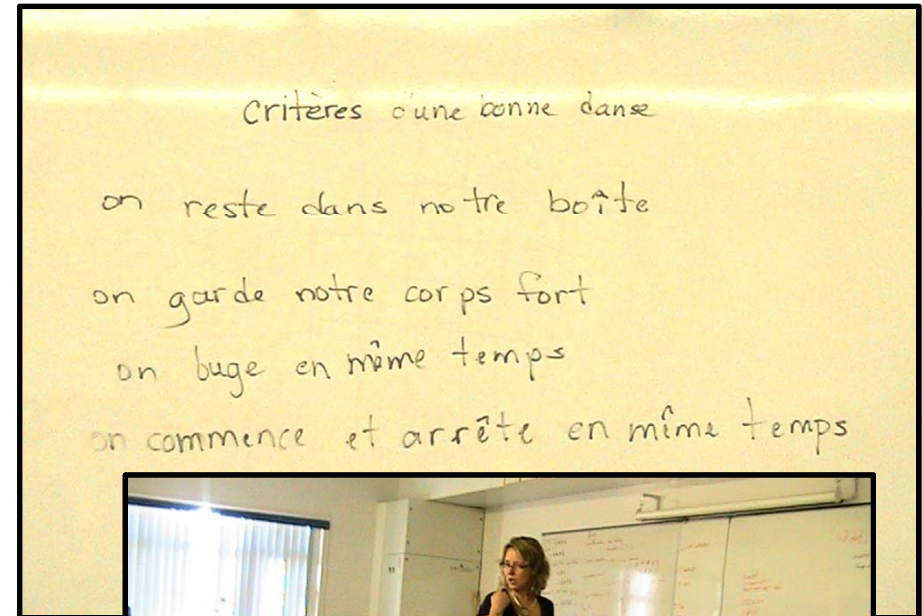 Critères d'une bonne danse
on reste dans notre boîte
on garde notre corps fort
on buge en même temps
on commence et arrête en même temps